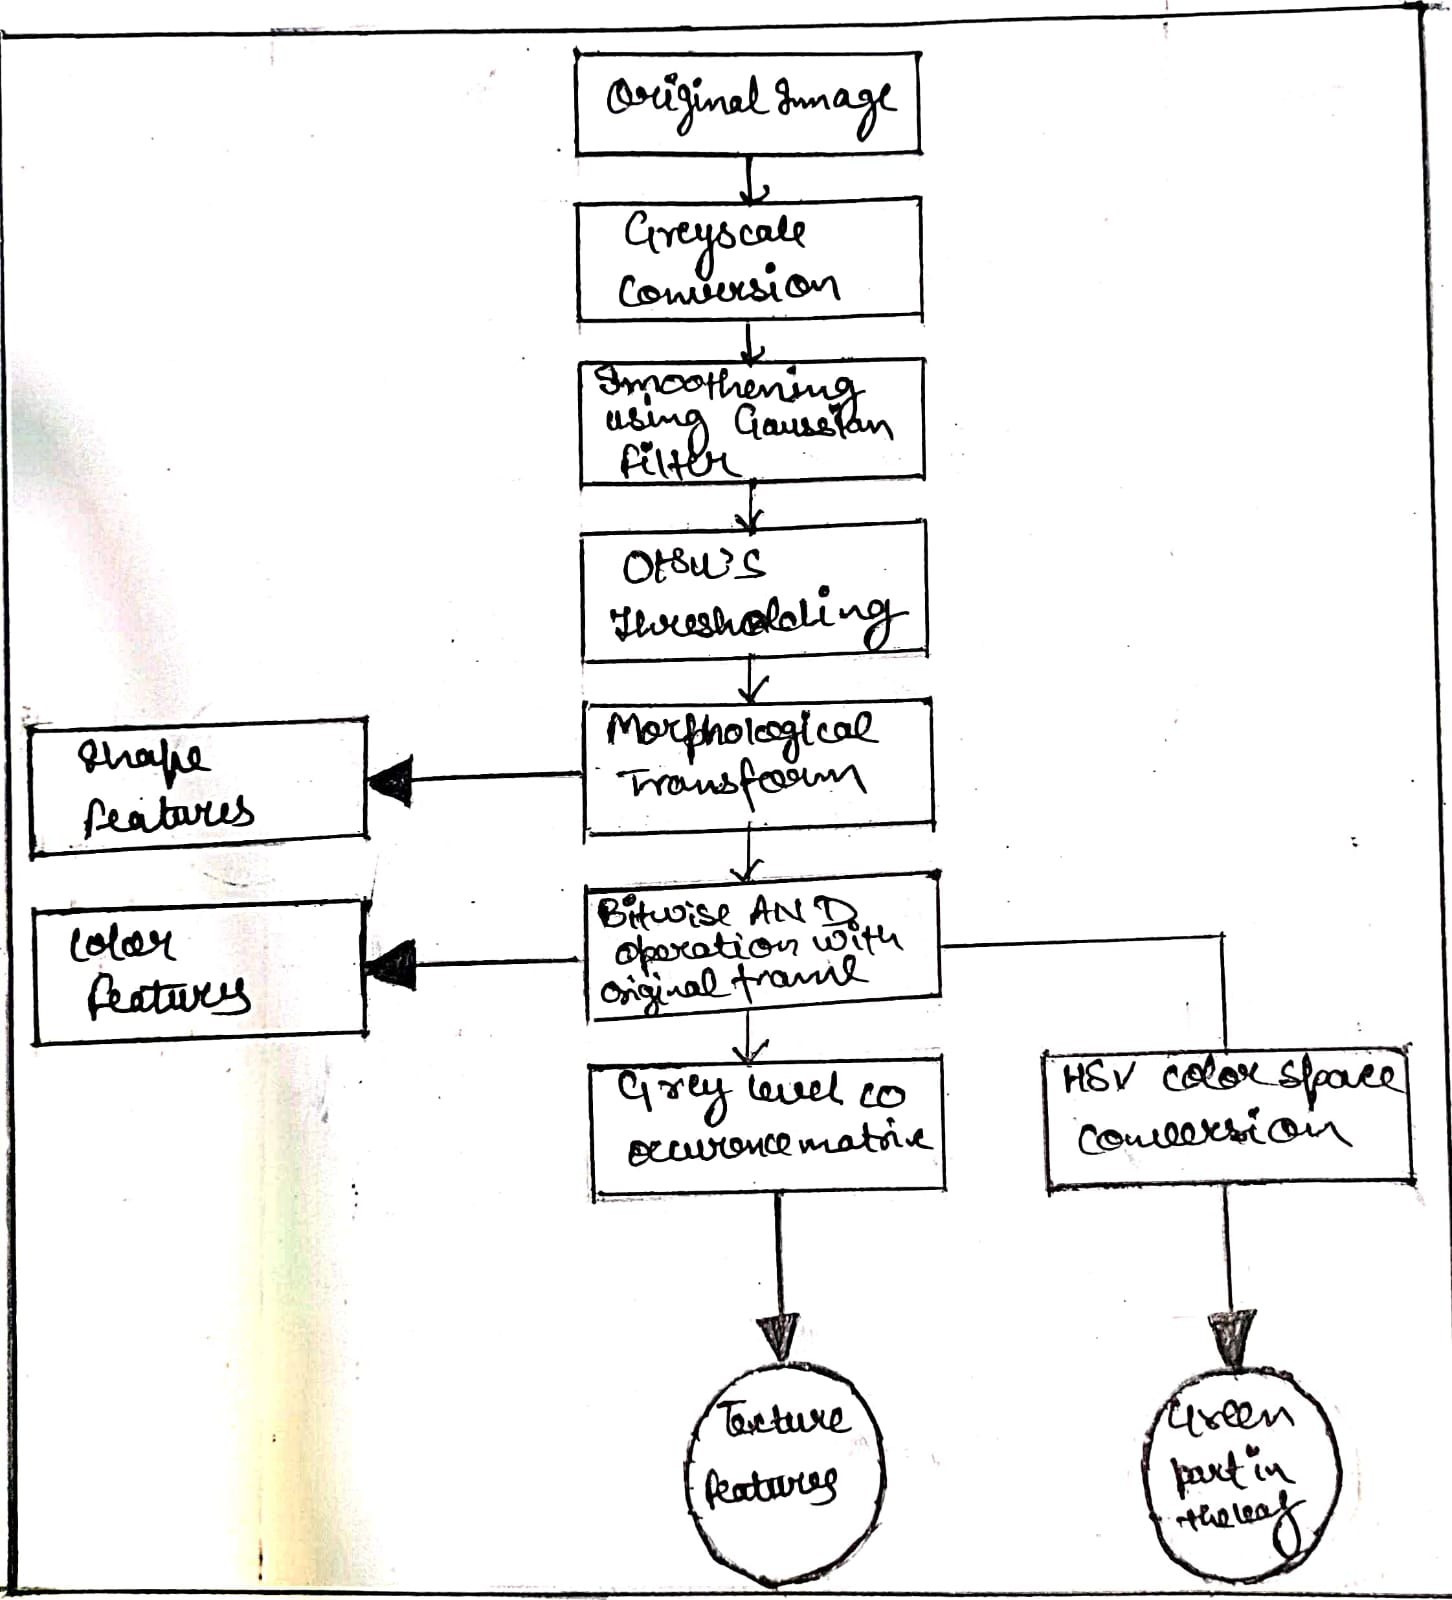 Original Image
Greyscale
Conversion
Smoothening
using Gaussian
filter
Otsu's
Thresholding
Morphological
Transform
Shape
features
Bitwise AND
operation with
original frame
Color
features
Grey level co
occurence matrix
HSV color space
conversion
Texture
features
Green
part in
the leaf